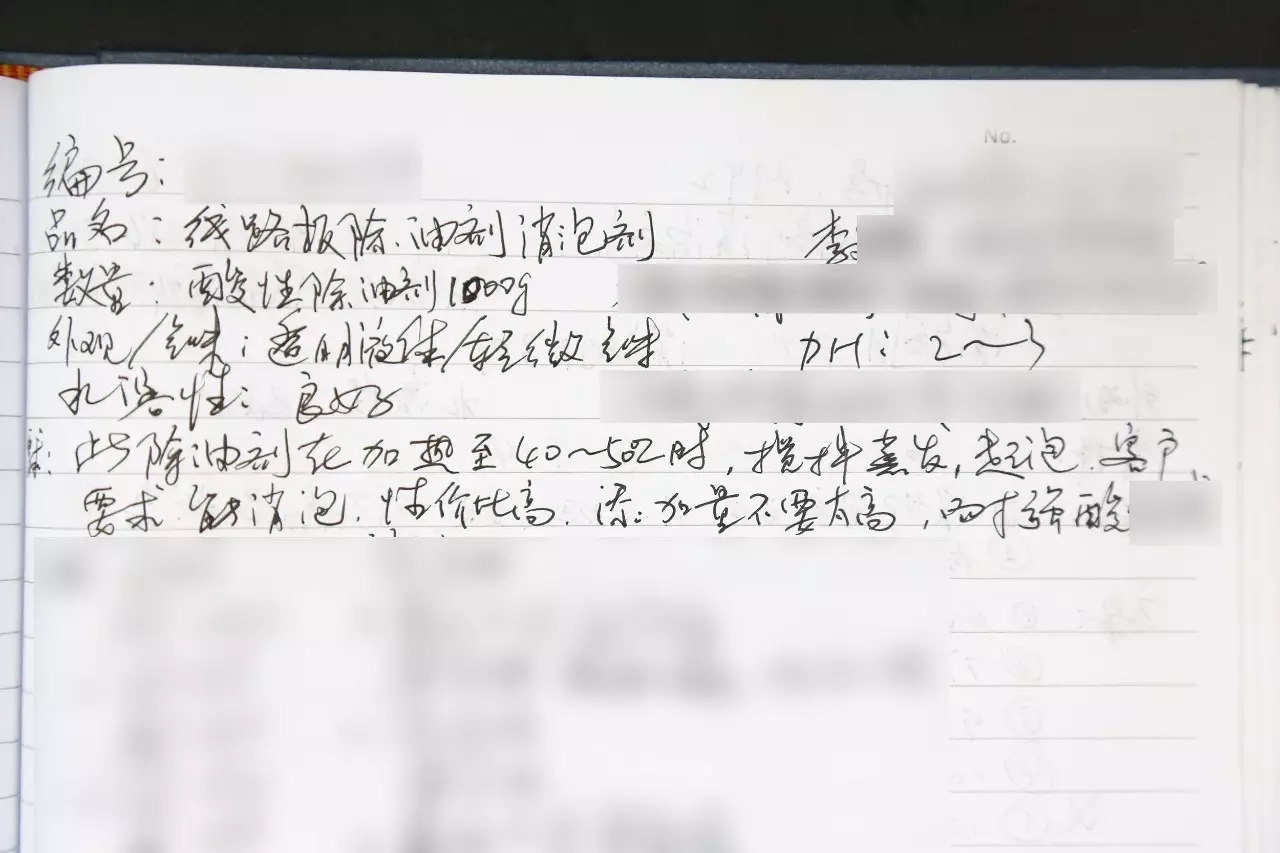 No.
编号:
品名: 线路板除油剂消泡剂 李
数量: 酸性除油剂1000g
外观/气味: 透明液体/轻微气味 PH: 2~3
水溶性: 良好
此除油剂在加热至40~50℃时, 搅拌蒸发, 起泡. 客户
要求 能消泡. 性价比高. 添加量不要太高, 耐强酸